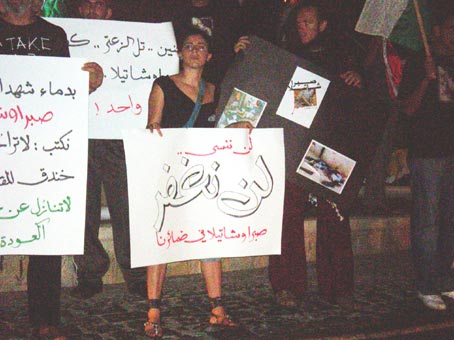 TAKE
بدماء شهدا
صبرا وش
نكتب : لا ترا
خندق المق
لا تنازل عن ح
العودة
تل الزعتر .. ك
صبرا وشاتيلا
واحد ١
لن ننسى ..
لن نغفر
صبرا وشاتيلا في ضمائرنا
صبرا